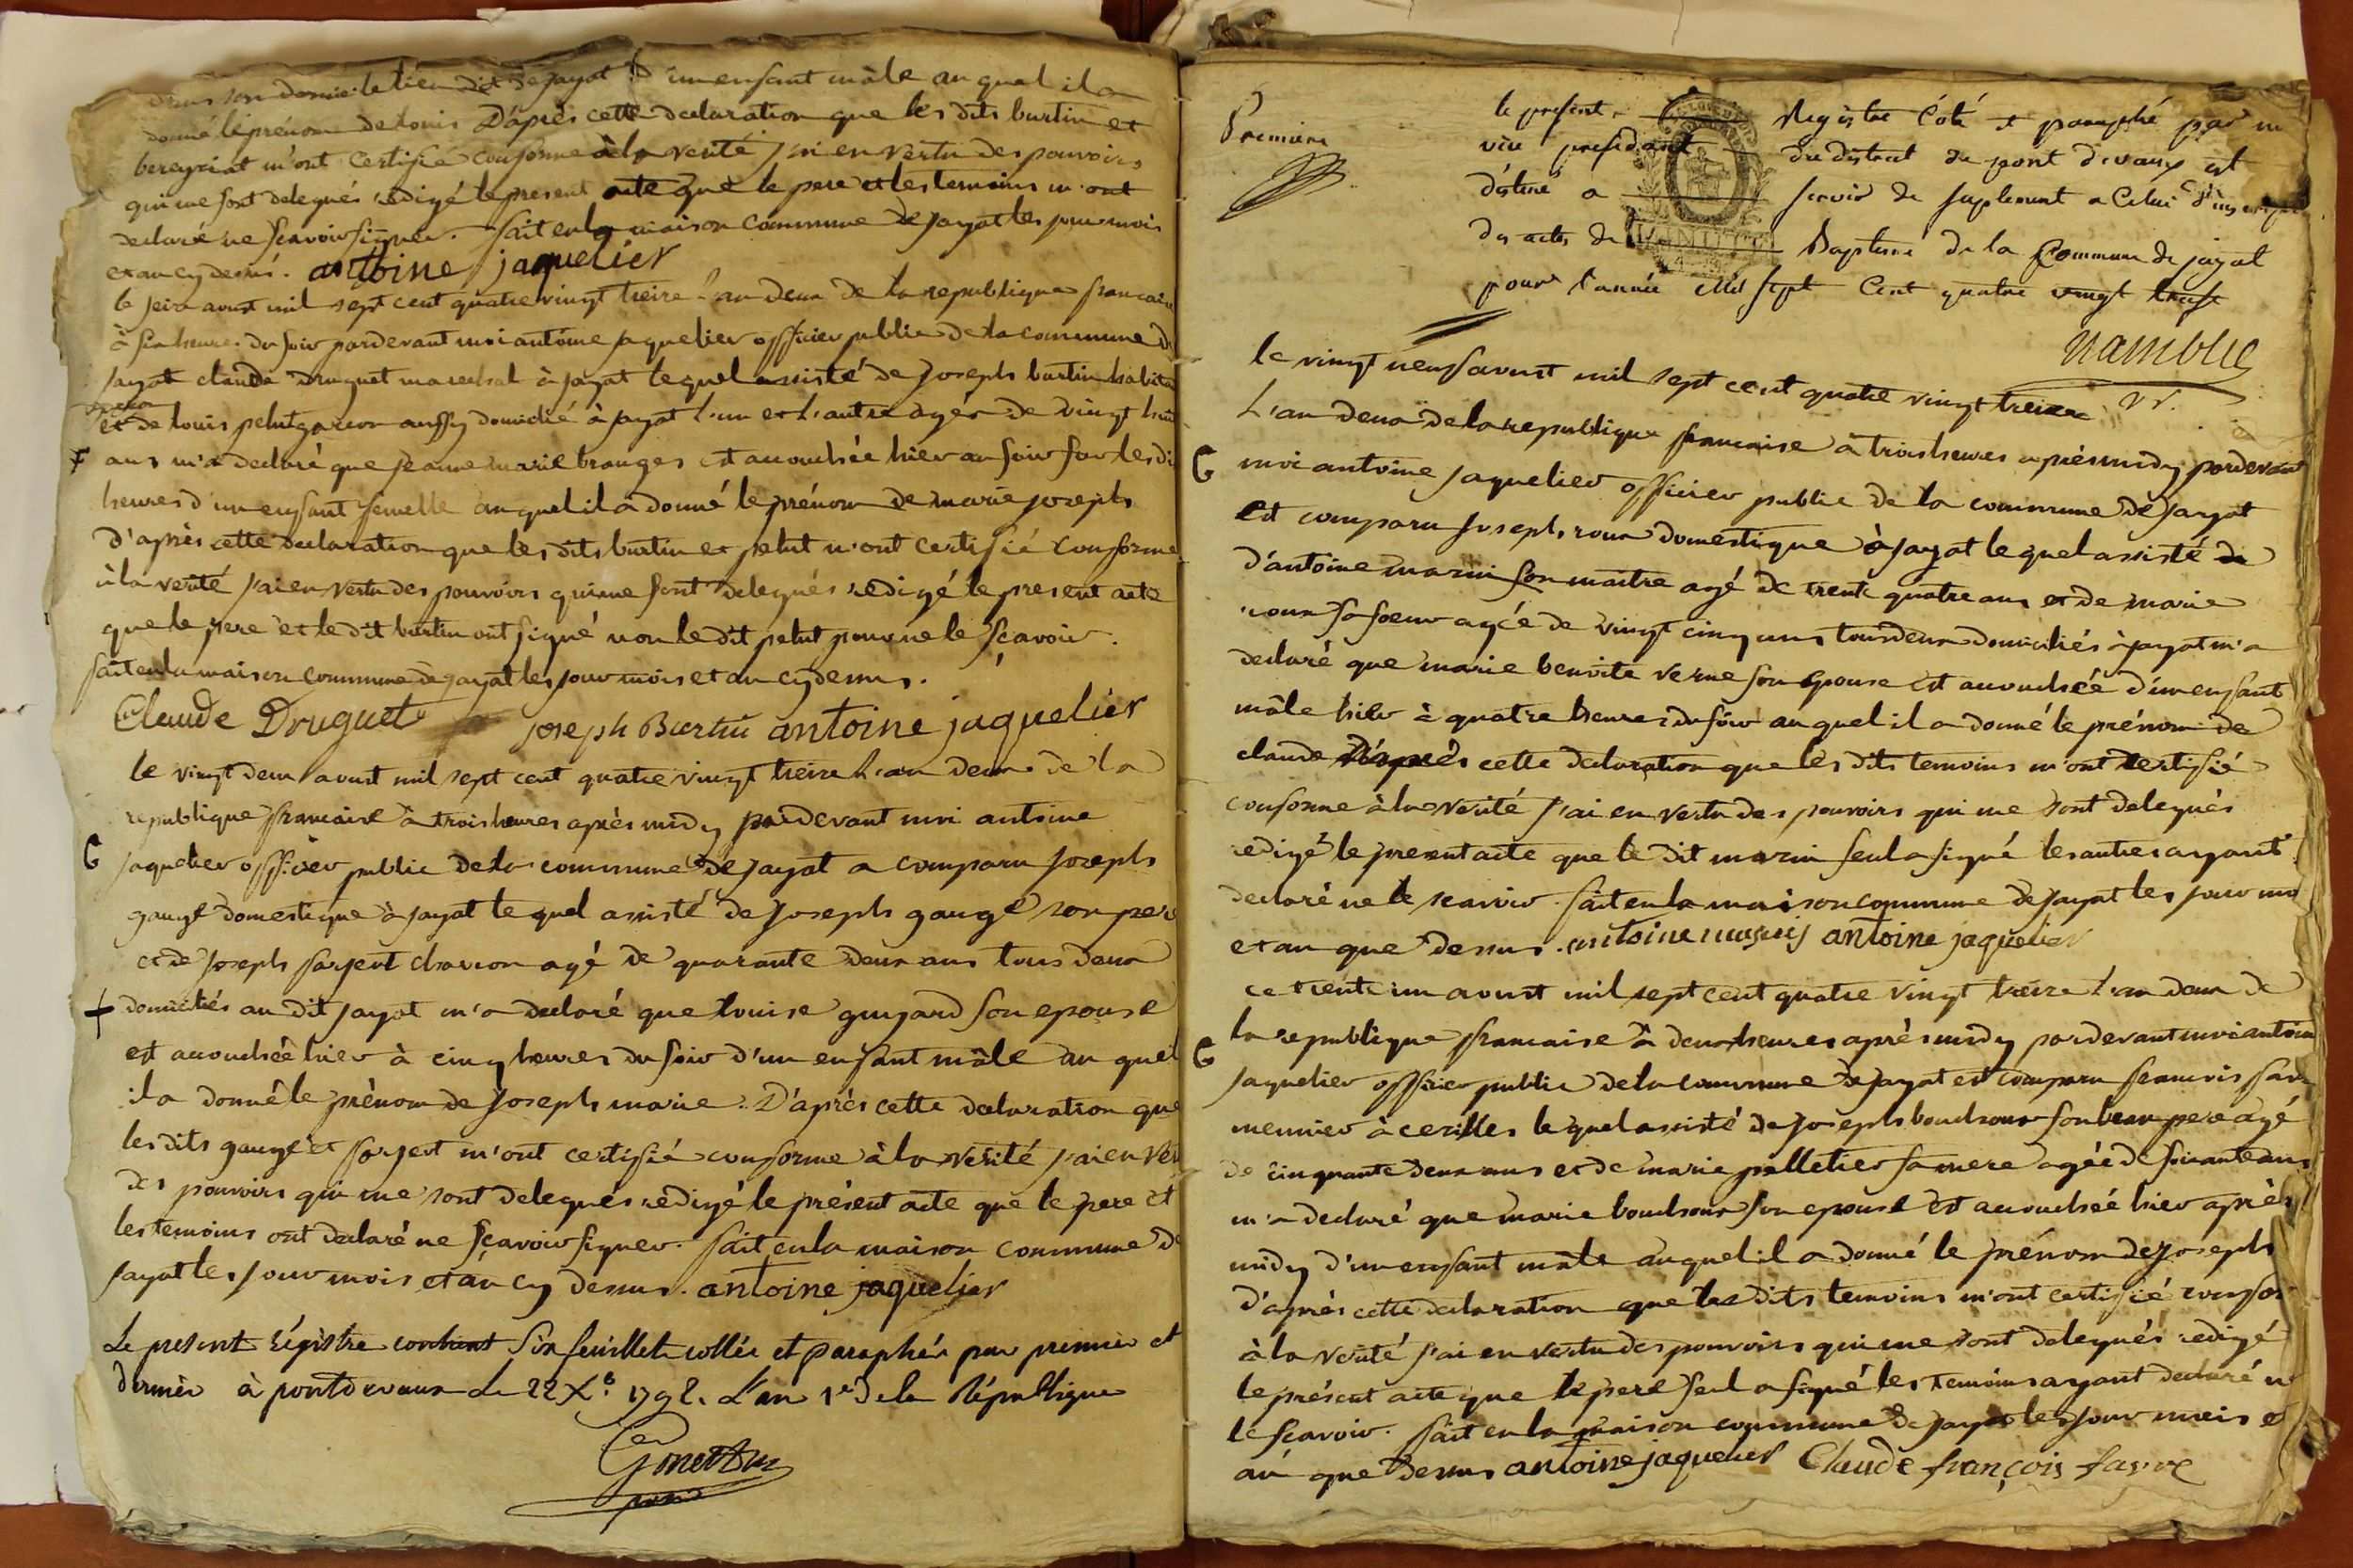 dans son domicile lieu dit de jayat d'un enfant mâle au quel il a
donné le prénom de louis D'après cette declaration que les dits burtin et
bereyziat m'ont certifié conforme à la verité j'ai en vertu des pouvoirs
qui me sont delegués redigé le present acte que le pere et les temoins m'ont
declaré ne sçavoir signer. fait en la maison commune de jayat les jour mois
et an cy dessus. antoine jaquelier
le seize avust mil sept cent quatre vingt treize l'an deux de la republique francaise
à six heures du soir pardevant moi antoine jaquelier officier public de la commune de
jayat claude druguet marechal à jayat lequel assisté de joseph burtin habita
et de louis pelut garcon aussy domicilié à jayat l'un et l'autre agés de vingt huit
ans m'a declaré que jeanne marie branges est accouchée hier au soir sur les di
heures d'un enfant femelle auquel il a donné le prénom de marie joseph
d'après cette declaration que les dits burtin et pelut m'ont certifié conforme
à la verité j'ai en vertu des pouvoirs qui me sont delegués redigé le present acte
que le pere et le dit burtin ont signé non le dit pelut pour ne le sçavoir.
fait en la maison commune de jayat les jour mois et an cy dessus.
Claude Druguet joseph Burtin antoine jaquelier
le vingt deux avust mil sept cent quatre vingt treize l'an deux de la
republique francaise à trois heures après midy pardevant moi antoine
G jaquelier officier public de la commune de jayat a comparu joseph
gauge domestique à jayat lequel assisté de joseph gauge son pere
et de joseph sarjent charron agé de quarante deux ans tous deux
+ domiciliés au dit jayat m'a declaré que louise guyard son epouse
est accouchée hier à cinq heures du soir d'un enfant mâle au quel
il a donné le prénom de joseph marie. D'après cette declaration que
les dits gauge et sarjent m'ont certifié conforme à la verité j'ai en ver
des pouvoirs qui me sont delegués redigé le présent acte que le pere et
les temoins ont declaré ne sçavoir signer. fait en la maison commune de
jayat les jour mois et an cy dessus. antoine jaquelier
Le present régistre contient six feuillets cottés et paraphés par premier et
dernier à pontdevaux le 22 Xe. 1792. L'an 1er de la République
Premiere
le present Registre Côté et paraphé par
vice president du district de pont devaux est
destiné a servir de suplement a Celui
des actes de Bapteme de la Commune de jayat
pour l'année Mil sept Cent quatre vingt treize
le vingt neuf avust mil sept cent quatre vingt treize
l'an deux de la republique francaise à trois heures après midy pardevant
G moi antoine jaquelier officier public de la commune de jayat
est comparu joseph roux domestique à jayat lequel assisté de
d'antoine marin son maitre agé de trente quatre ans et de marie
roux sa soeur agée de vingt cinq ans tous deux domiciliés à jayat m'a
declaré que marie benoite verne son epouse est accouchée d'un enfant
mâle hier à quatre heures du soir au quel il a donné le prénom de
claude D'après cette declaration que les dits temoins m'ont certifié
conforme à la verité j'ai en vertu des pouvoirs qui me sont delegués
redigé le present acte que le dit marin seul a signé les autres ayant
declaré ne le scavoir. fait en la maison commune de jayat les jour moi
et an que dessus. antoine antoine jaquelier
ce trente un avust mil sept cent quatre vingt treize l'an deux de
la republique francaise à deux heures après midy pardevant moi antoine
G jaquelier officier public de la commune de jayat est comparu francois favre
meunier à cezilles lequel assisté de joseph bouchoux son beau pere agé
de cinquante deux ans et de marie pelletier sa mere agée de soixante ans
m'a declaré que marie bouchoux son epouse est accouchée hier après
midy d'un enfant mâle auquel il a donné le prénom de joseph
d'après cette declaration que les dits temoins m'ont certifié confor
à la verité j'ai en vertu des pouvoirs qui me sont delegués redigé
le présent acte que le pere seul a signé les temoins ayant declaré ne
le scavoir. fait en la maison commune de jayat les jour mois et
an que dessus antoine jaquelier Claude françois favre